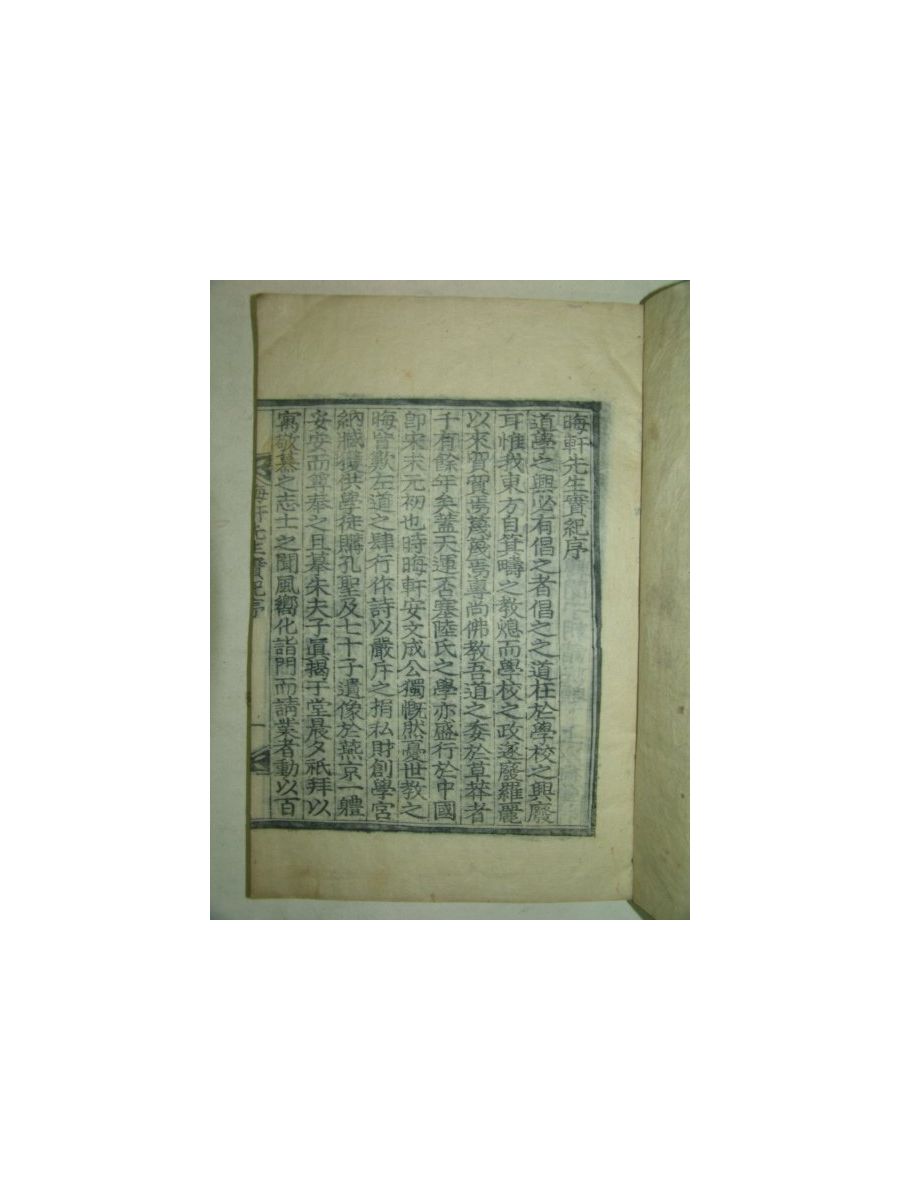 晦軒先生實紀序
道學之興必有倡之者倡之之道在於學校之興廢
耳惟我東方自箕疇之教熄而學校之政遂廢羅麗
以來貿貿焉蔑蔑焉專尚佛教吾道之委於草莽者
千有餘年矣蓋天運否塞陸氏之學亦盛行於中國
卽宋末元初也時晦軒安文成公獨慨然憂世教之
晦盲歎左道之肆行作詩以嚴斥之捐私財創學宮
納臧獲供學徒購孔聖及七十子遺像於燕京一軆
妥安而尊奉之且摹朱夫子眞揭于堂晨夕祇拜以
寓敬慕之志士之聞風嚮化詣門而請業者動以百
晦軒先生實紀序 一